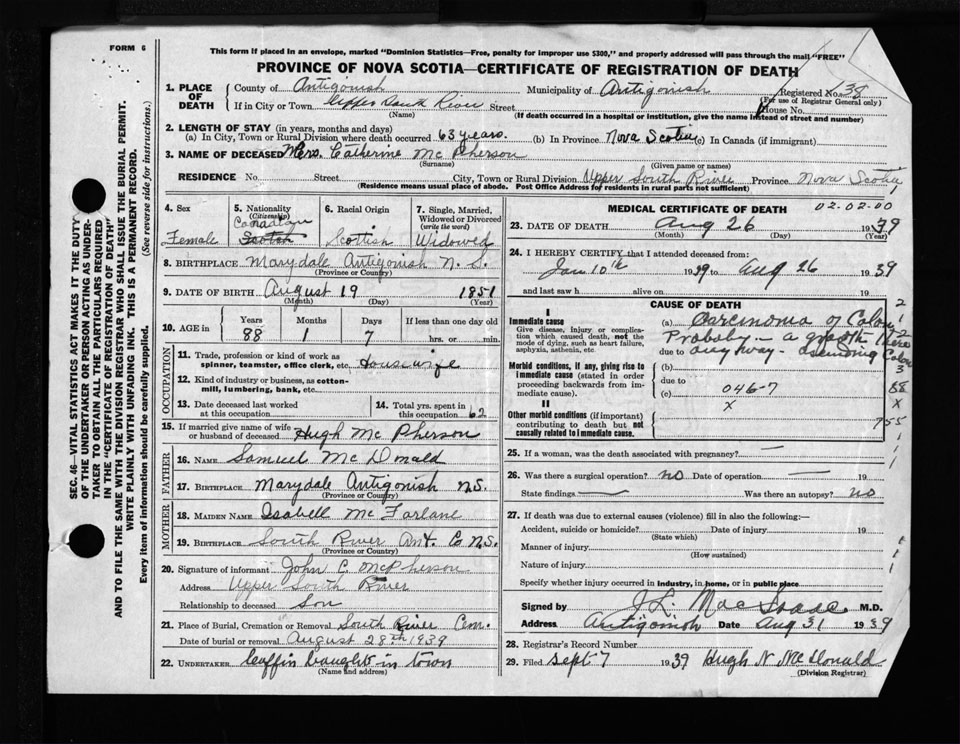 FORM 6
This form if placed in an envelope, marked "Dominion Statistics—Free, penalty for improper use $300," and properly addressed will pass through the mail "FREE"
PROVINCE OF NOVA SCOTIA—CERTIFICATE OF REGISTRATION OF DEATH
1. PLACE OF DEATH County of Antigonish Municipality of Antigonish Registered No. 38
(For use of Registrar General only)
If in City or Town Upper South River Street House No.
(Name) (If death occurred in a hospital or institution, give the name instead of street and number)
2. LENGTH OF STAY (in years, months and days)
(a) In City, Town or Rural Division where death occurred 63 years. (b) In Province Nova Scotia (c) In Canada (if immigrant)
3. NAME OF DECEASED Mrs. Catherine McPherson
(Surname) (Given name or names)
RESIDENCE No. Street. City, Town or Rural Division Upper South River Province Nova Scotia
(Residence means usual place of abode. Post Office Address for residents in rural parts not sufficient)
4. Sex Female
5. Nationality (Citizenship) Canadian Scotch
6. Racial Origin Scottish
7. Single, Married, Widowed or Divorced (write the word) Widowed
8. BIRTHPLACE Marydale Antigonish N.S.
(Province or Country)
9. DATE OF BIRTH August 19 1851
(Month) (Day) (Year)
10. AGE in Years 88 Months 1 Days 7 If less than one day old hrs. or min.
OCCUPATION
11. Trade, profession or kind of work as spinner, teamster, office clerk, etc. Housewife
12. Kind of industry or business, as cotton-mill, lumbering, bank, etc.
13. Date deceased last worked at this occupation
14. Total yrs. spent in this occupation 62
15. If married give name of wife or husband of deceased Hugh McPherson
FATHER
16. NAME Samuel McDonald
17. BIRTHPLACE Marydale Antigonish N.S.
(Province or Country)
MOTHER
18. MAIDEN NAME Isabell McFarlane
19. BIRTHPLACE South River Ant. Co N.S.
(Province or Country)
20. Signature of informant John C. McPherson
Address Upper South River
Relationship to deceased Son
21. Place of Burial, Cremation or Removal South River Cem.
Date of burial or removal August 28th 1939
22. UNDERTAKER Coffin baught in town
(Name and address)
MEDICAL CERTIFICATE OF DEATH
02.02.00
23. DATE OF DEATH Aug 26 1939
(Month) (Day) (Year)
24. I HEREBY CERTIFY that I attended deceased from:
Jan 10th 1939 to Aug 26 1939
and last saw h alive on 19
CAUSE OF DEATH
I
Immediate cause
Give disease, injury, or complication which caused death, not the mode of dying, such as heart failure, asphyxia, asthenia, etc.
(a) Carcinoma of Colon
Probably – a growth there
due to anyway – ascending Colon
Morbid conditions, if any, giving rise to immediate cause (stated in order proceeding backwards from immediate cause).
(b)
due to
(c) 046-7
x
II
Other morbid conditions (if important) contributing to death but not causally related to immediate cause.
88
X
755
25. If a woman, was the death associated with pregnancy?
26. Was there a surgical operation? no Date of operation
State findings Was there an autopsy? no
27. If death was due to external causes (violence) fill in also the following:—
Accident, suicide or homicide? Date of injury 19
(State which)
Manner of injury
(How sustained)
Nature of injury
Specify whether injury occurred in industry, in home, or in public place
Signed by J.L. MacIsaac M.D.
Address Antigonish Date Aug 31 1939
28. Registrar's Record Number
29. Filed Sept 7 1939 Hugh N McDonald
(Division Registrar)
SEC. 46—VITAL STATISTICS ACT MAKES IT THE DUTY
OF THE UNDERTAKER OR PERSON ACTING AS UNDER-
TAKER TO OBTAIN ALL THE PARTICULARS REQUIRED
IN THE "CERTIFICATE OF REGISTRATION OF DEATH"
AND TO FILE THE SAME WITH THE DIVISION REGISTRAR WHO SHALL ISSUE THE BURIAL PERMIT.
WRITE PLAINLY WITH UNFADING INK. THIS IS A PERMANENT RECORD.
Every item of information should be carefully supplied. (See reverse side for instructions.)